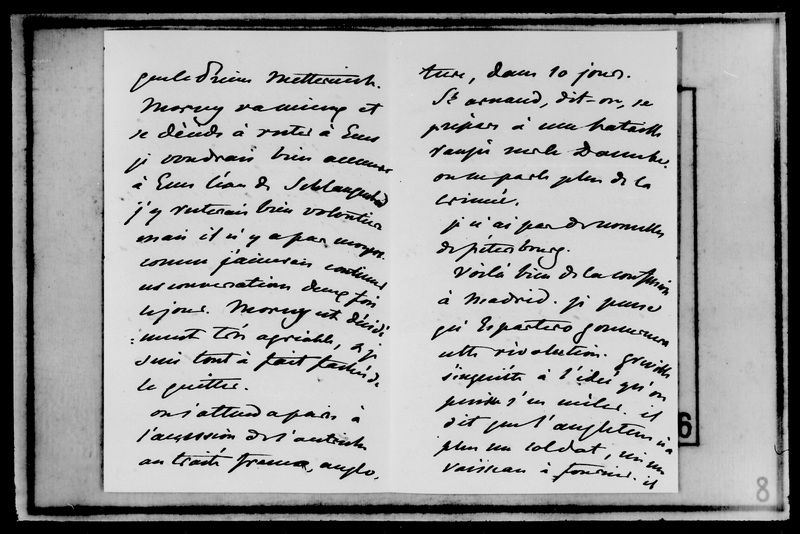 que le Prince Metternich.
Morny va mieux et
se décide à rester à Ems
je voudrais bien amener
à Ems l'eau de Schlangenbad
j'y resterais bien volontiers
mais il n'y a pas moyen.
comme j'aimerais continuer
nos conversations deux fois
le jour. Morny est décidé-
-ment très agréable, & je
suis tout à fait fachée de
le quitter.
on s'attend à paris à
l'accession de l'autriche
au traité franco, anglo,
ture, dans 10 jours.
St arnaud, dit-on, se
prépare à une bataille
rangée sur le Danube.
on ne parle plus de la
crimée.
je n'ai pas de nouvelles
de pétersbourg.
Voilà bien de la confusion
à Madrid. je pense
qu'Espartero gouvernera
cette révolution. Greville
s'inquiète à l'idée qu'on
puisse s'en mêler. il
dit que l'angleterre n'a
plus un soldat, ni un
vaisseau à fournir. il
6
8